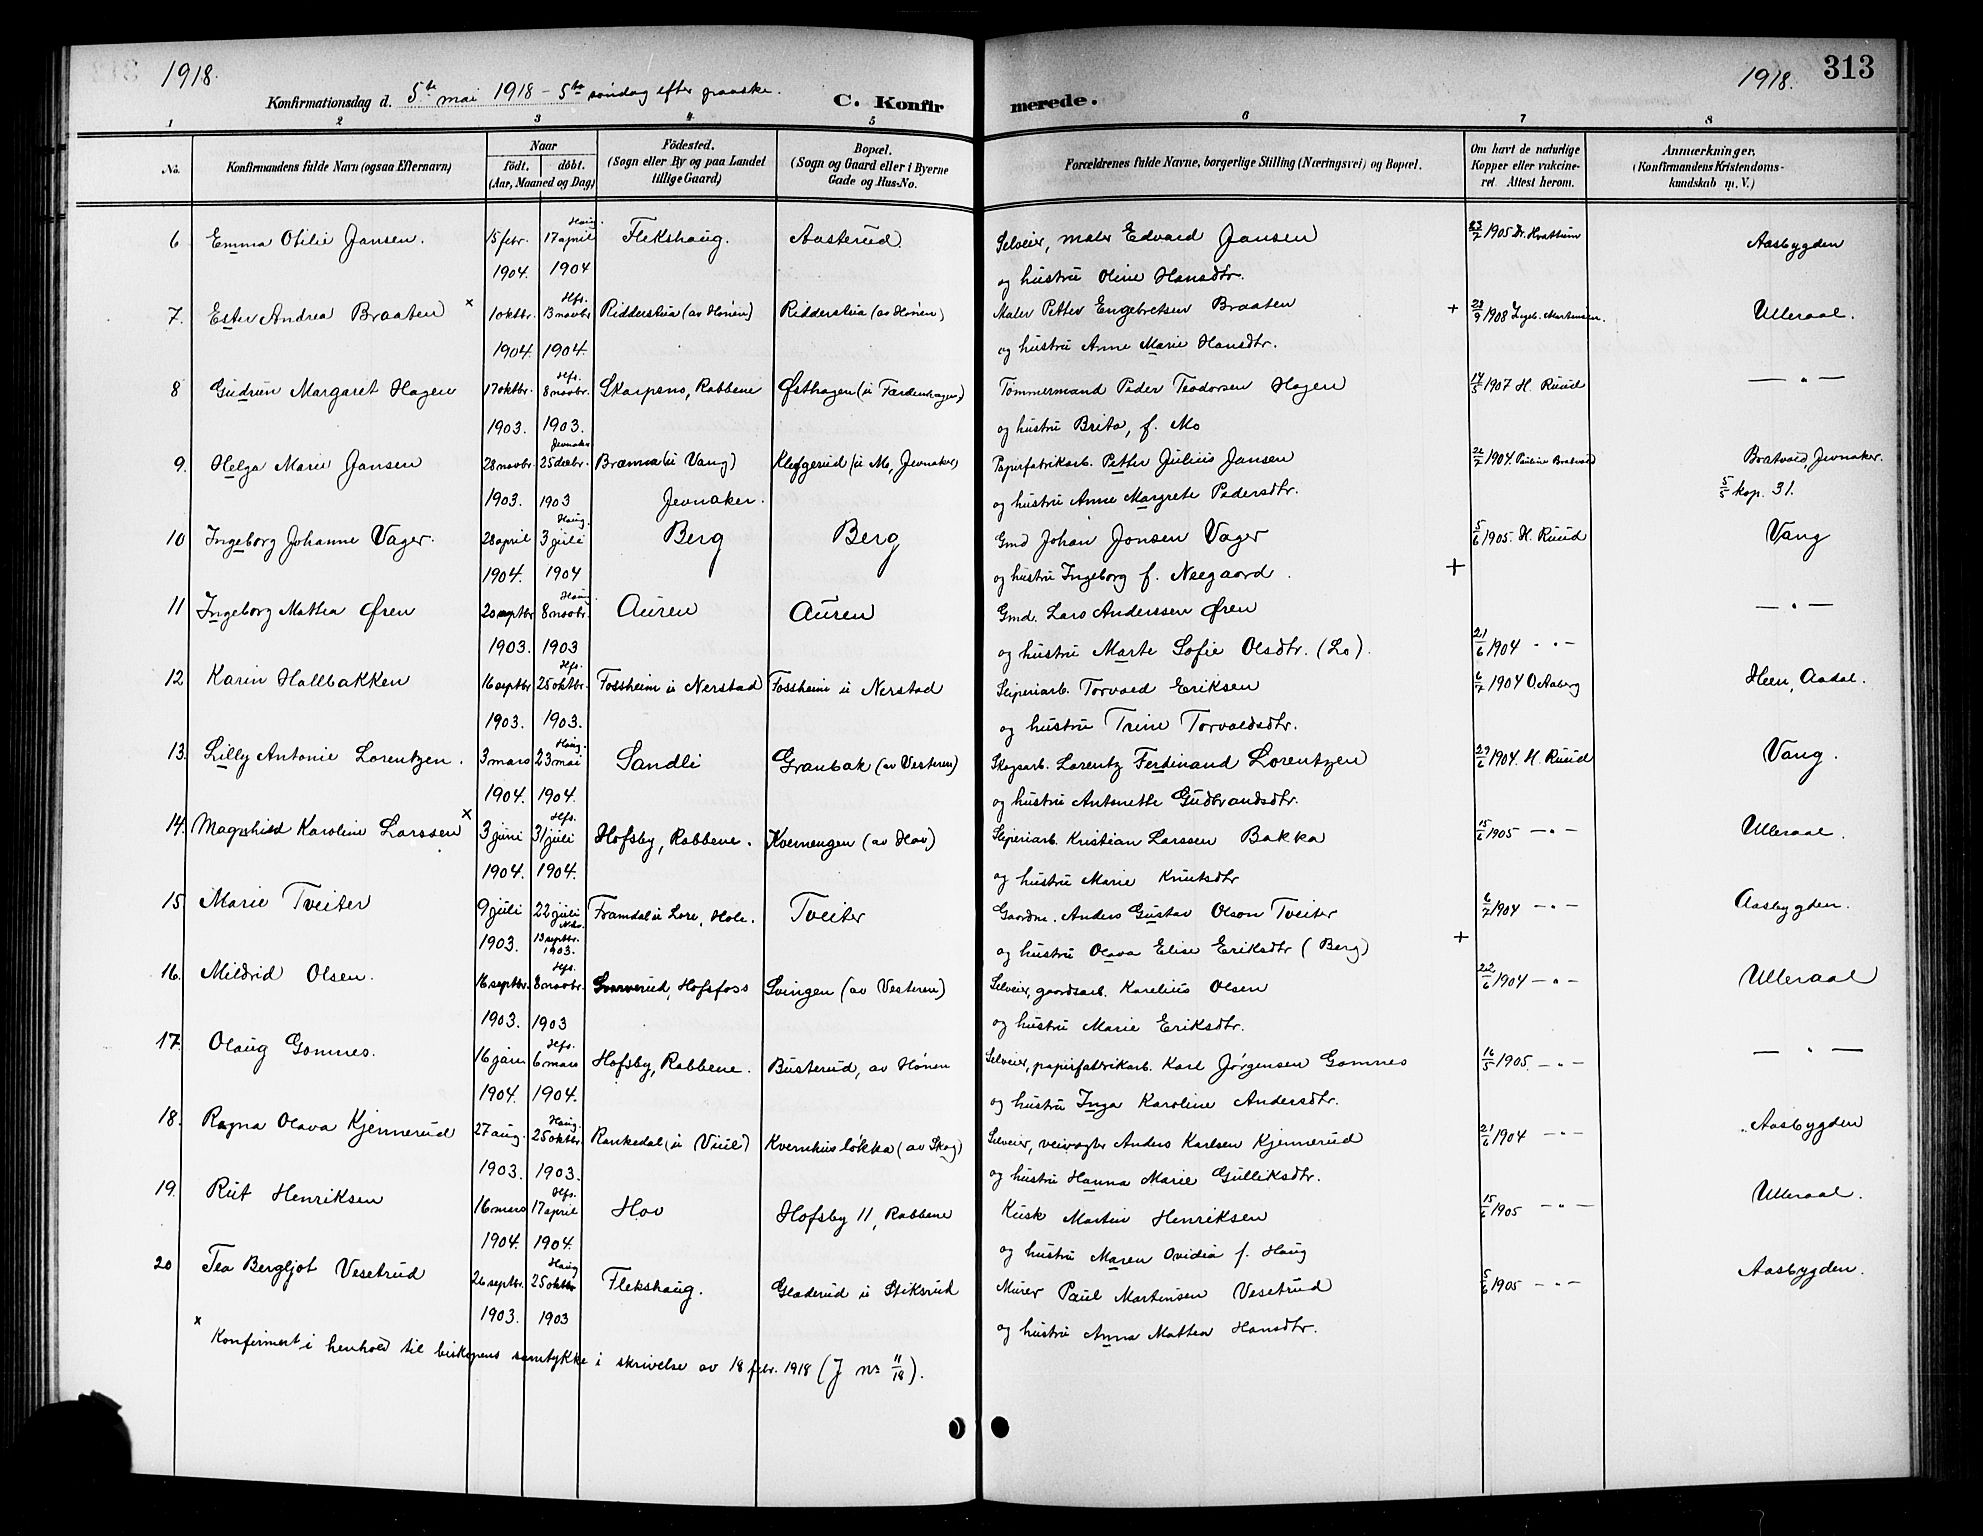 1918.
Konfirmationsdag d. 5te mai 1918 - 5te søndag efter paaske.
C. Konfirmerede.
1918. 313
1 2 3 4 5 6 7 8
No.
Konfirmandens fulde Navn (ogsaa Efternavn)
Naar
födt. döbt.
(Aar, Maaned og Dag)
Födested.
(Sogn eller By og paa Landet
tillige Gaard)
Bopæl.
(Sogn og Gaard eller i Byerne
Gade og Hus-No.
Forældrenes fulde Navne, borgerlige Stilling (Næringsvei) og Bopæl.
Om havt de naturlige
Kopper eller vakcine-
ret. Attest herom.
Anmærkninger,
(Konfirmandens Kristendoms-
kundskab m. V.)
6 Emma Otilie Jansen. 15 febr. 1904. Haug. 17 april 1904 Flekshaug. Aasterud. Selveier, maler Edvard Jansen 23/7 1905 Dr. Hvattum Aasbygden
og hustru Oline Hansdtr.
7. Ester Andrea Braaten x 1 oktbr. 1904. Hfs. 13 novbr 1904. Ridderstua (av Hønen) Ridderstua (av Hønen) Maler Petter Engebretsen Braaten + 28/9 1908 Ingb. Martinsen. Ulleraal.
og hustru Anne Marie Hansdtr.
8 Gudrun Margaret Hagen 17 oktbr. 1903. Hfs. 8 novbr. 1903. Skarpens, Rabbene Østhagen (u Færdenhagen) Tømmermand Peder Teodorsen Hagen 14/5 1907 H. Ruud — " —
og hustru Brita, f. Mo
9. Helga Marie Jansen 28 novbr. 1903. Jevnaker 25 decbr. 1903 Bræmna (u Vang) Jevnaker. Klefgerud (u Mo, Jevnaker) Papirfabrikarb. Petter Julius Jansen 22/7 1904. Pauline Bratvold Bratvold, Jevnaker.
og hustru Anne Margrete Pedersdtr. 5/5 kap. 31.
10 Ingeborg Johanne Vager. 28 april 1904. Haug. 3 juli 1904 Berg Berg Gmd Johan Jonsen Vager 5/6 1905. H. Ruud Vang
og hustru Ingeborg f. Neegaard. +
11 Ingeborg Mathea Øren 20 septbr 1903. Haug. 8 novbr. 1903 Auren Auren Gmd. Lars Anderssen Øren — " —
og hustru Marte Sofie Olsdtr. (Lo). 21/6 1904 - " -
12 Karin Hallbakken 16 septbr 1903. Hfs. 25 oktbr. 1903. Fossheim u Nerstad Fossheim u Nerstad Sliperiarb. Torvald Eriksen 6/7 1904 O. Aaberg Heen, Aadal.
og hustru Trine Torvaldsdtr.
13. Lilly Antonie Lorentzen. 3 mars 1904. Haug. 23 mai 1904. Sandli Granbak (av Vesteren) Skogsarb. Lorentz Ferdinand Lorentzen 29/6 1904. H. Ruud Vang.
og hustru Antonette Gudbrandsdtr.
14. Magnhild Karoline Larssen x 3 juni 1904. Hfs. 31 juli 1904. Hofsby, Rabbene. Kvernengen (av Hov) Sliperiarb. Kristian Larssen Bakka 15/6 1905 — " — Ulleraal.
og hustru Marie Knutsdtr
15 Marie Tveiter 9 juli 1903. 22 juli 13 septbr. 1903. Framdal u Lore, Hole. Tveiter Gaardm. Anders Gustav Olson Tveiter 6/7 1904 — " — Aasbygden.
og hustru Olava Elise Eriksdtr (Berg) +
16. Mildrid Olsen. 16 septbr. 1903. Hfs. 8 novbr. 1903 Hofsfoss Svingen (av Vesteren) Selveier, gaardsarb. Karelius Olsen 22/6 1904 — " — Ulleraal
og hustru Marie Eriksdtr.
17. Olaug Gomnes. 16 jan 1904. Hfs. 6 mars 1904. Hofsby, Rabbene. Busterud, av Hønen Selveier, papirfabrikarb. Karl Jørgensen Gomnes 16/5 1905. — " — — " —
og hustru Inga Karoline Andersdtr.
18. Ragna Olava Kjennerud 27 aug. 1903. Haug. 25 oktbr. 1903. Rankedal (u Viul) Kvernhusløkka (av Skog) Selveier, veivogter Anders Karlsen Kjennerud 21/6 1904 — " — Aasbygden
og hustru Hanna Marie Gulliksdtr.
19. Rut Henriksen 16 mars 1904. Hfs. 17 april 1904. Hov Hofsby 11, Rabbene Kusk Martin Henriksen 15/6 1905 — " — Ulleraal.
og hustru Maren Ovidia f. Haug
20 Tea Bergljot Vesetrud 26 septbr. 1903. Haug 25 oktbr 1903 Flekshaug. Gladerud u Stiksrud Murer Paul Martinsen Vesetrud 5/6 1905 — " — Aasbygden.
og hustru Anna Mathea Hansdtr.
x Konfirmert i henhold til biskopens samtykke i skrivelse av 18 febr. 1918 (J no 11/18).